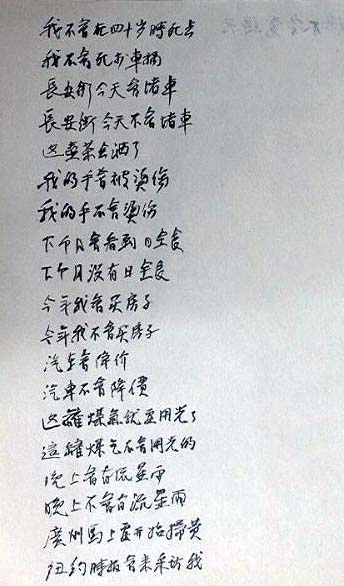 我不會在四十岁時死去
我不會死於車禍
長安街今天會堵車
長安街今天不會堵車
这壶茶会洒了
我的手會被燙伤
我的手不會燙伤
下个月會看到日全食
下个月没有日全食
今年我會买房子
今年我不會买房子
汽车會降价
汽車不會降價
这罐煤氣就要用光了
這罐煤气不會用光的
晚上會有流星雨
晚上不會有流星雨
廣州馬上要开始掃黄
纽约時报會来采訪我